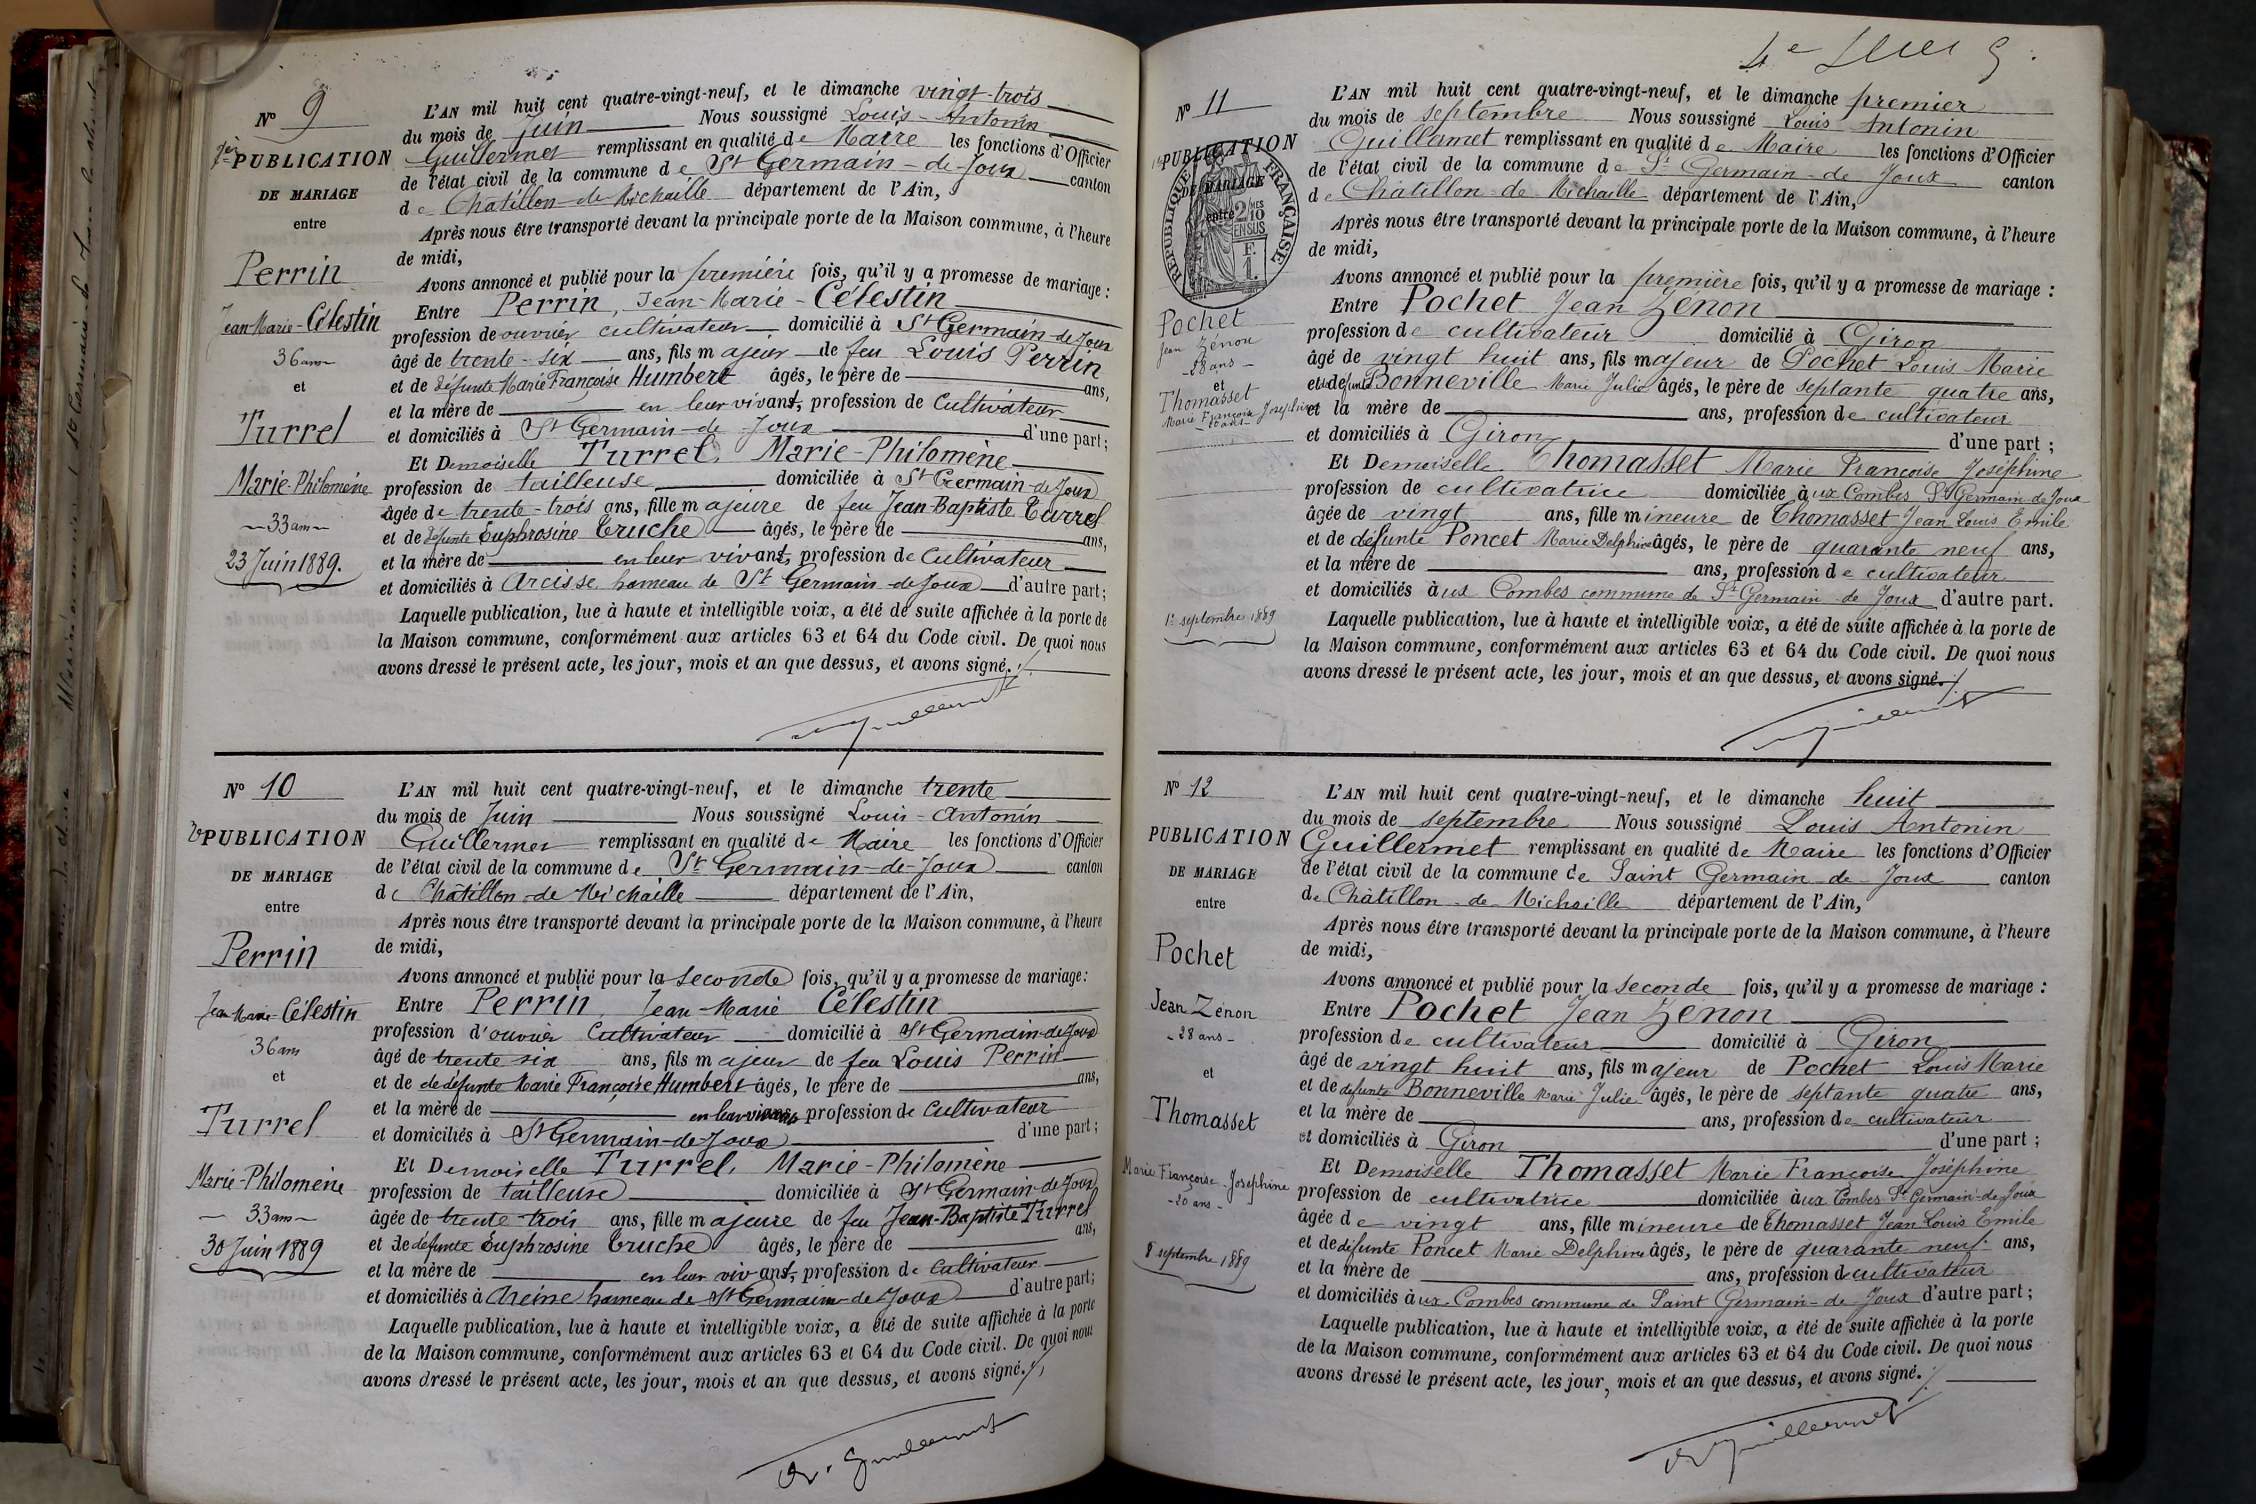 N° 9
1ère PUBLICATION
DE MARIAGE
entre
Perrin
Jean-Marie-Célestin
36 ans
et
Turrel
Marie-Philomène
33 ans
23 Juin 1889.
L'AN mil huit cent quatre-vingt-neuf, et le dimanche vingt-trois
du mois de Juin Nous soussigné Louis-Antonin
Guillermet remplissant en qualité de Maire les fonctions d'Officier
de l'état civil de la commune de St Germain-de-Joux canton
de Chatillon-de-Michaille département de l'Ain,
Après nous être transporté devant la principale porte de la Maison commune, à l'heure
de midi,
Avons annoncé et publié pour la première fois, qu'il y a promesse de mariage :
Entre Perrin, Jean-Marie-Célestin
profession de ouvrier cultivateur domicilié à St Germain-de-Joux
âgé de trente-six ans, fils majeur de feu Louis Perrin
et de défunte Marie Françoise Humbert âgés, le père de ans,
et la mère de en leur vivant, profession de Cultivateur
et domiciliés à St Germain-de-Joux d'une part ;
Et Demoiselle Turrel, Marie-Philomène
profession de tailleuse domiciliée à St Germain-de-Joux
âgée de trente-trois ans, fille majeure de feu Jean-Baptiste Turrel
et de défunte Euphrosine Truche âgés, le père de ans,
et la mère de en leur vivant, profession de Cultivateur
et domiciliés à Arcisse hameau de St Germain-de-Joux d'autre part ;
Laquelle publication, lue à haute et intelligible voix, a été de suite affichée à la porte de
la Maison commune, conformément aux articles 63 et 64 du Code civil. De quoi nous
avons dressé le présent acte, les jour, mois et an que dessus, et avons signé.
Guillermet
N° 10
2e PUBLICATION
DE MARIAGE
entre
Perrin
Jean-Marie-Célestin
36 ans
et
Turrel
Marie-Philomène
33 ans
30 Juin 1889
L'AN mil huit cent quatre-vingt-neuf, et le dimanche trente
du mois de Juin Nous soussigné Louis-Antonin
Guillermet remplissant en qualité de Maire les fonctions d'Officier
de l'état civil de la commune de St Germain-de-Joux canton
de Châtillon-de-Michaille département de l'Ain,
Après nous être transporté devant la principale porte de la Maison commune, à l'heure
de midi,
Avons annoncé et publié pour la seconde fois, qu'il y a promesse de mariage :
Entre Perrin, Jean-Marie Célestin
profession d'ouvrier Cultivateur domicilié à St Germain-de-Joux
âgé de trente six ans, fils majeur de feu Louis Perrin
et de de défunte Marie Françoise Humbert âgés, le père de ans,
et la mère de en leur vivant profession de Cultivateur
et domiciliés à St Germain-de-Joux d'une part ;
Et Demoiselle Turrel, Marie-Philomène
profession de tailleuse domiciliée à St Germain-de-Joux
âgée de trente-trois ans, fille majeure de feu Jean-Baptiste Turrel
et de défunte Euphrosine Truche âgés, le père de ans,
et la mère de en leur vivant, profession de Cultivateur
et domiciliés à hameau de St Germain-de-Joux d'autre part ;
Laquelle publication, lue à haute et intelligible voix, a été de suite affichée à la porte
de la Maison commune, conformément aux articles 63 et 64 du Code civil. De quoi nous
avons dressé le présent acte, les jour, mois et an que dessus, et avons signé.
Guillermet
4e
N° 11
1e PUBLICATION
DE MARIAGE
entre
RÉPUBLIQUE FRANÇAISE
2/10MES
EN SUS
F.
1.
Pochet
Jean Zénon
-28 ans-
et
Thomasset
Marie Françoise Joséphine
-20 ans-
1er septembre 1889
L'AN mil huit cent quatre-vingt-neuf, et le dimanche premier
du mois de septembre Nous soussigné Louis Antonin
Guillermet remplissant en qualité de Maire les fonctions d'Officier
de l'état civil de la commune de St Germain-de Joux canton
de Châtillon-de-Michaille département de l'Ain,
Après nous être transporté devant la principale porte de la Maison commune, à l'heure
de midi,
Avons annoncé et publié pour la première fois, qu'il y a promesse de mariage :
Entre Pochet Jean Zénon
profession de cultivateur domicilié à Giron
âgé de vingt huit ans, fils majeur de Pochet Louis Marie
et de défunte Bonneville Marie Julie âgés, le père de septante quatre ans,
et la mère de ans, profession de cultivateur
et domiciliés à Giron d'une part ;
Et Demoiselle Thomasset Marie Françoise Joséphine
profession de cultivatrice domiciliée aux Combes St Germain-de Joux
âgée de vingt ans, fille mineure de Thomasset Jean Louis Emile
et de défunte Poncet Marie Delphine âgés, le père de quarante neuf ans,
et la mère de ans, profession de cultivateur
et domiciliés aux Combes commune de St Germain-de Joux d'autre part.
Laquelle publication, lue à haute et intelligible voix, a été de suite affichée à la porte de
la Maison commune, conformément aux articles 63 et 64 du Code civil. De quoi nous
avons dressé le présent acte, les jour, mois et an que dessus, et avons signé.
Guillermet
N° 12
PUBLICATION
DE MARIAGE
entre
Pochet
Jean Zénon
-28 ans-
et
Thomasset
Marie Françoise-Joséphine
-20 ans-
8 septembre 1889
L'AN mil huit cent quatre-vingt-neuf, et le dimanche huit
du mois de septembre Nous soussigné Louis Antonin
Guillermet remplissant en qualité de Maire les fonctions d'Officier
de l'état civil de la commune de Saint Germain-de-Joux canton
de Châtillon-de-Michaille département de l'Ain,
Après nous être transporté devant la principale porte de la Maison commune, à l'heure
de midi,
Avons annoncé et publié pour la seconde fois, qu'il y a promesse de mariage :
Entre Pochet Jean Zénon
profession de cultivateur domicilié à Giron
âgé de vingt huit ans, fils majeur de Pochet Louis Marie
et de défunte Bonneville Marie Julie âgés, le père de septante quatre ans,
et la mère de ans, profession de cultivateur
et domiciliés à Giron d'une part ;
Et Demoiselle Thomasset Marie Françoise Joséphine
profession de cultivatrice domiciliée aux Combes St Germain-de Joux
âgée de vingt ans, fille mineure de Thomasset Jean Louis Emile
et de défunte Poncet Marie Delphine âgés, le père de quarante neuf ans,
et la mère de ans, profession de cultivateur
et domiciliés aux Combes commune de Saint Germain-de Joux d'autre part ;
Laquelle publication, lue à haute et intelligible voix, a été de suite affichée à la porte
de la Maison commune, conformément aux articles 63 et 64 du Code civil. De quoi nous
avons dressé le présent acte, les jour, mois et an que dessus, et avons signé.
Guillermet